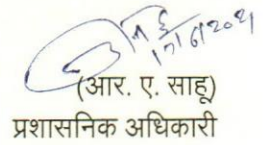 17/6/2021
(आर. ए. साहू)
प्रशासनिक अधिकारी